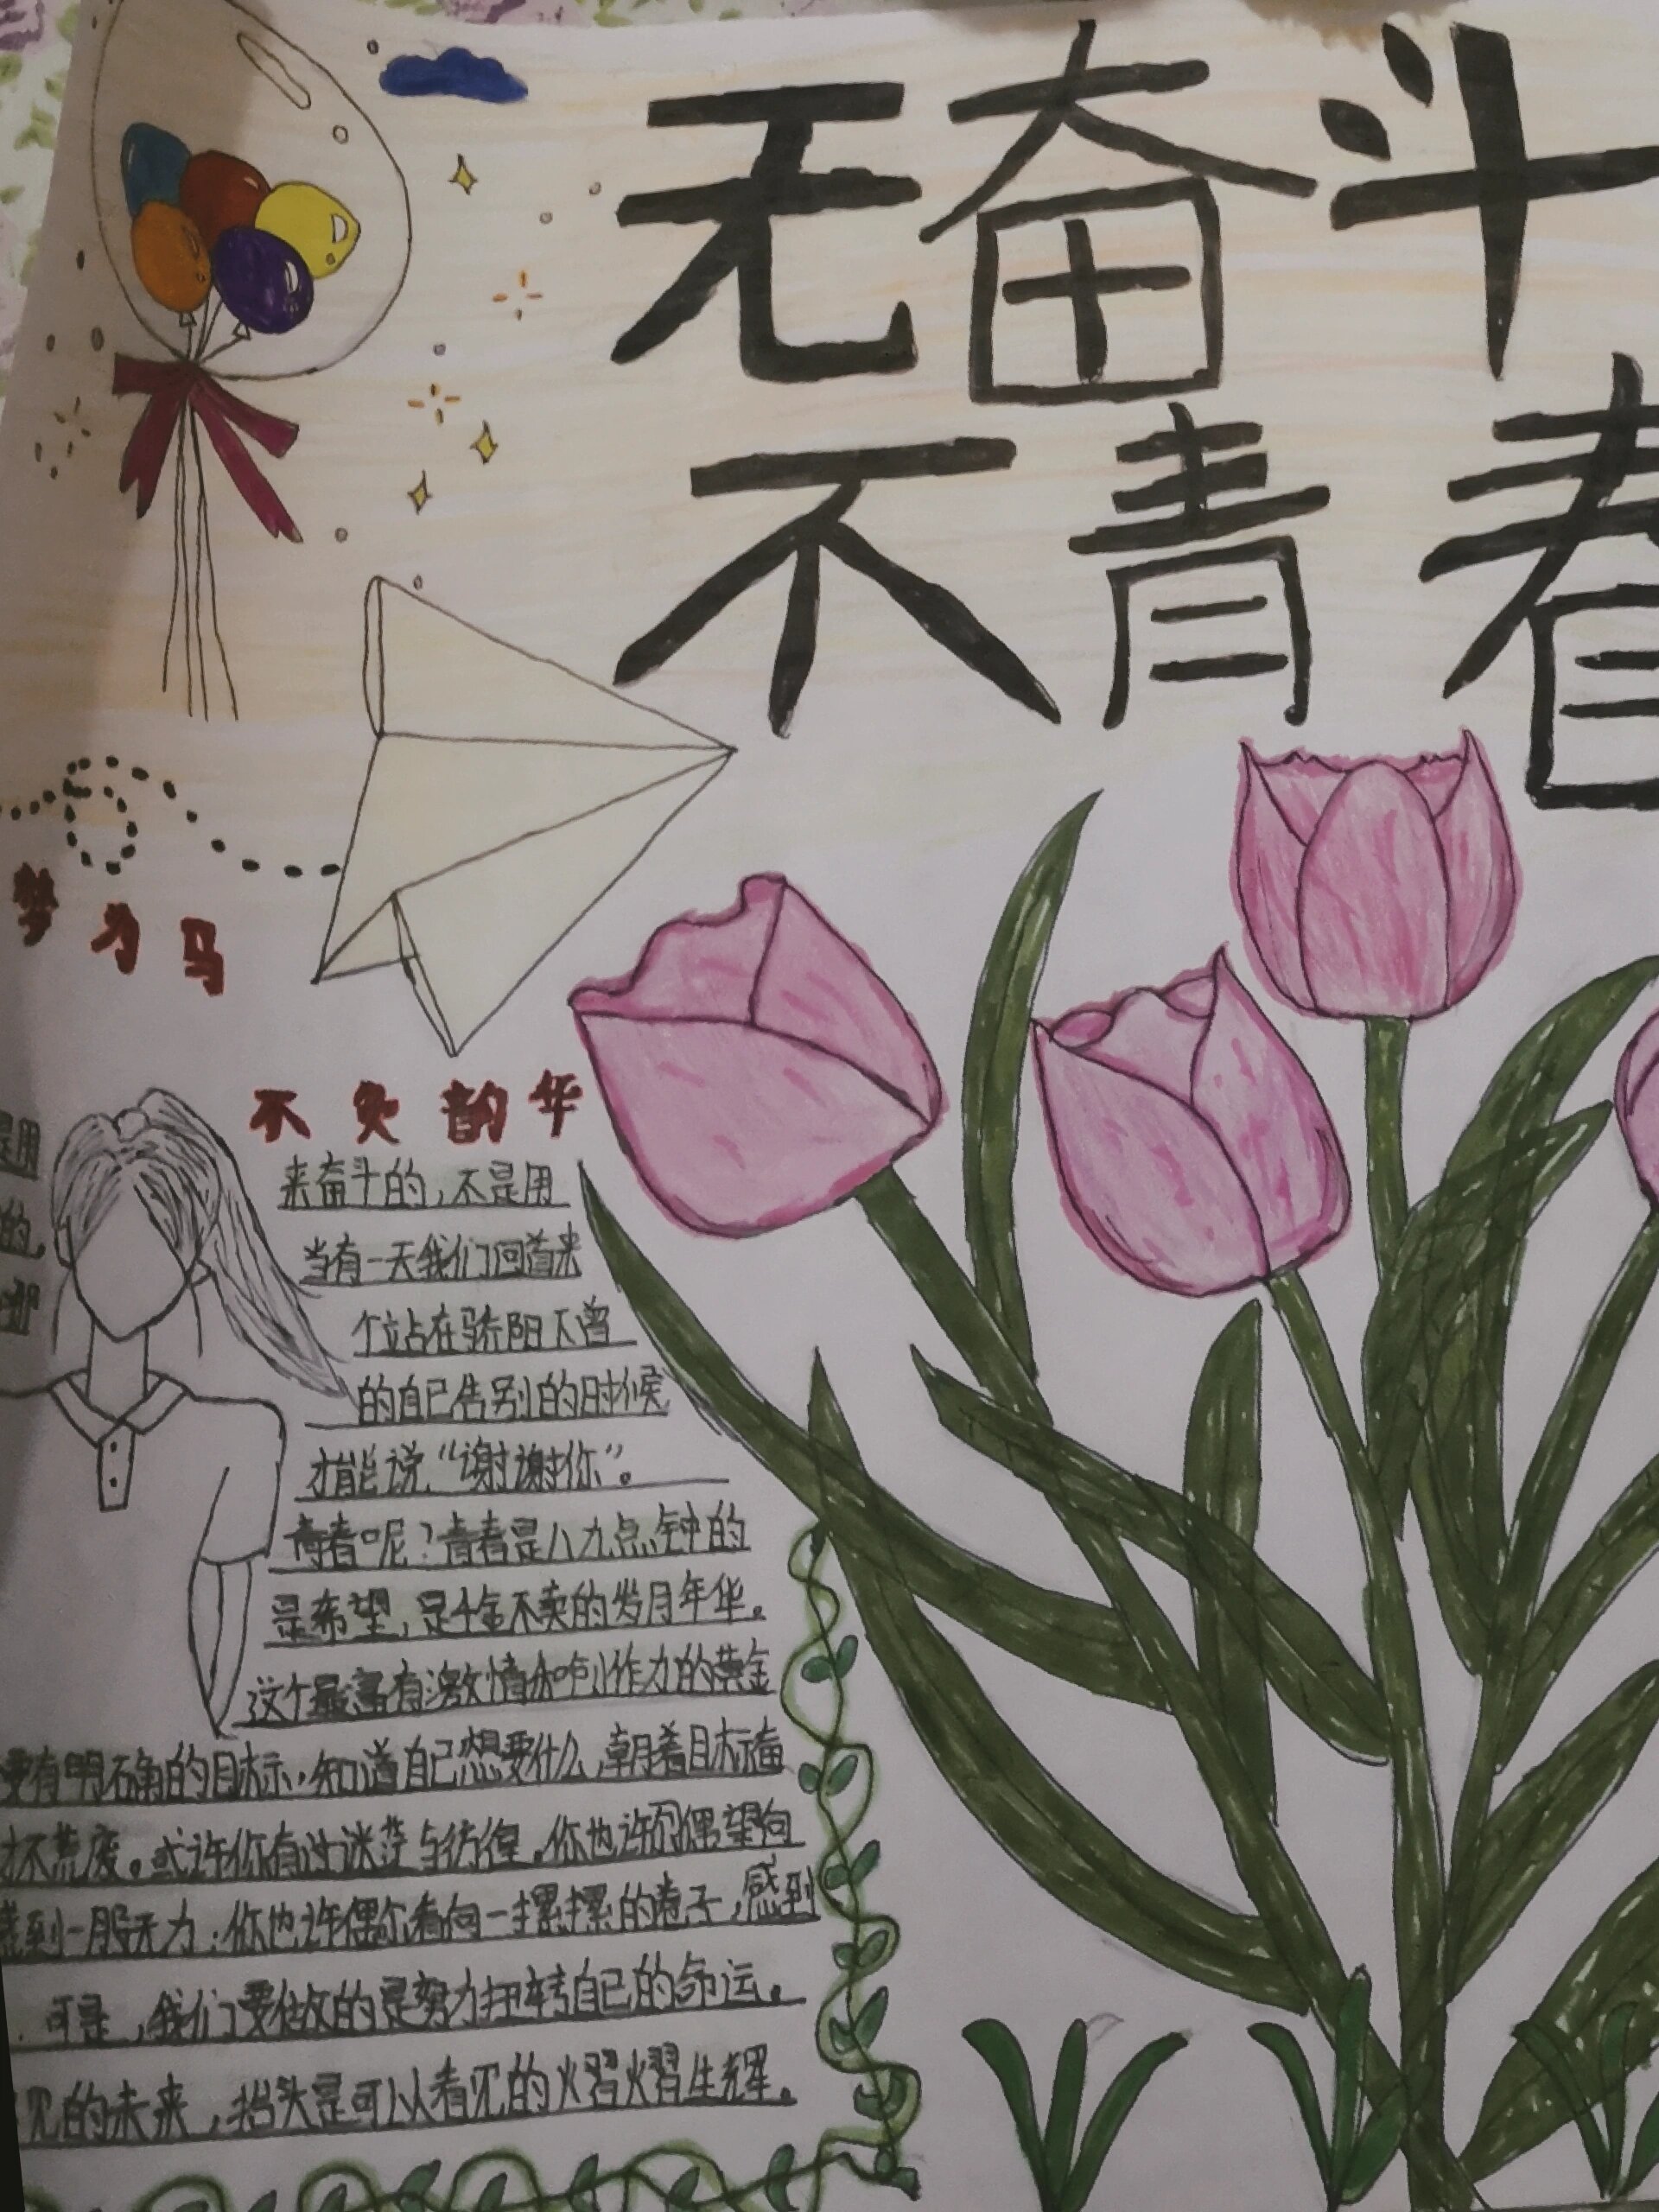 无奋斗
不青春
梦为马
不负韵华
是用
来奋斗的,不是用
的,
当有一天我们回首来
个站在骄阳下曾
的自己告别的时候
才能说“谢谢你”。
青春呢?青春是八九点钟的
是希望,是千金不卖的岁月年华。
这个最富有激情和创作力的黄金
要有明确的目标,知道自己想要什么,朝着目标奋
才不荒废。或许你有过迷茫与彷徨,你也许偶望向
感到一股无力;你也许偶尔看向一摞摞的卷子,感到
可是,我们要做的是努力扭转自己的命运。
见的未来,抬头是可以看见的熠熠生辉。